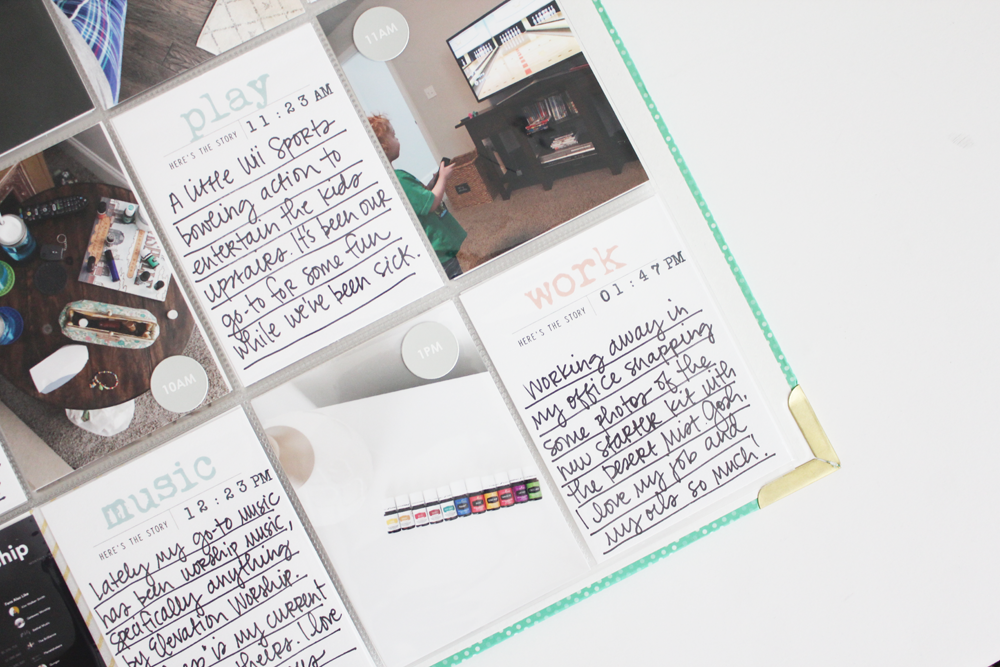 11AM
play
HERE'S THE STORY 11:23 AM
A little Wii Sports
bowling action to
entertain the kids
upstairs. It's been our
go-to for some fun
while we've been sick.
work
HERE'S THE STORY 01:47 PM
Working away in
my office snapping
some photos of the
new starter kit with
the Desert Mist Gosh,
I love my job and
my oils so much!
10AM
1PM
music
HERE'S THE STORY 12:23 PM
Lately my go-to music
has been worship music,
specifically anything
by Elevation Worship.
is my current
helps. I love